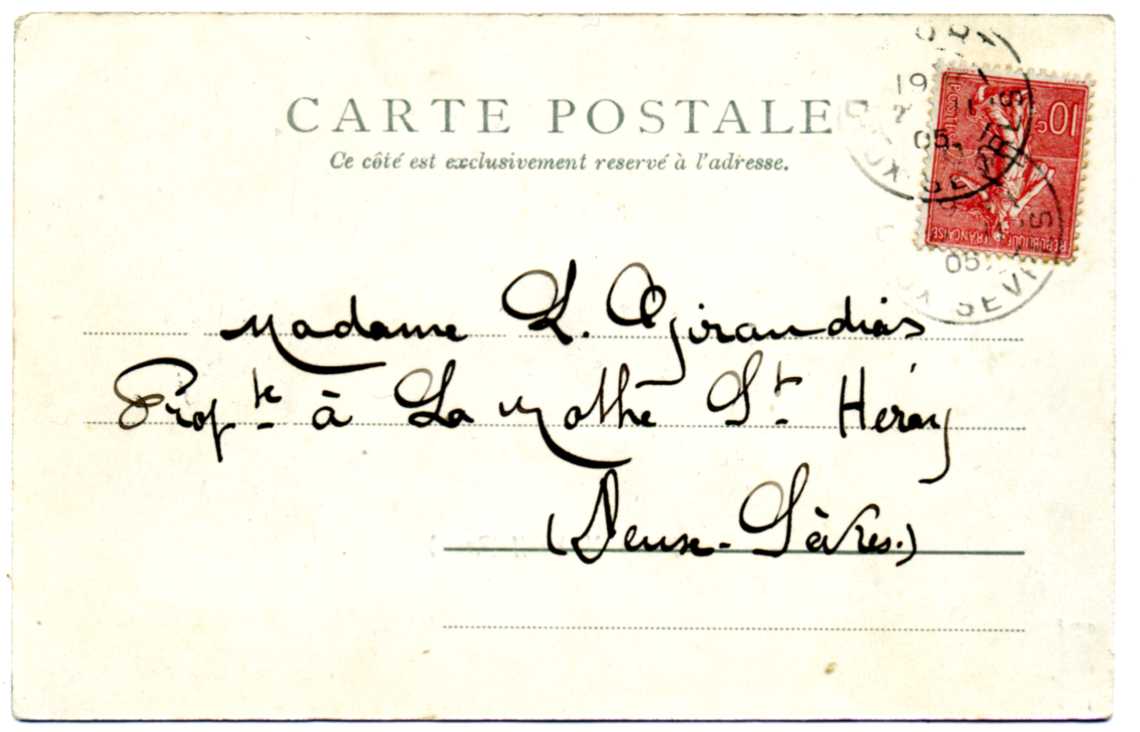 CARTE POSTALE
Ce côté est exclusivement reservé à l'adresse.
19
05
10c
POSTES
REPUBLIQUE FRANÇAISE
05
SEVRES
Madame L. Girandias
Propte à La Mothe St Héray
(Deux-Sèvres.)